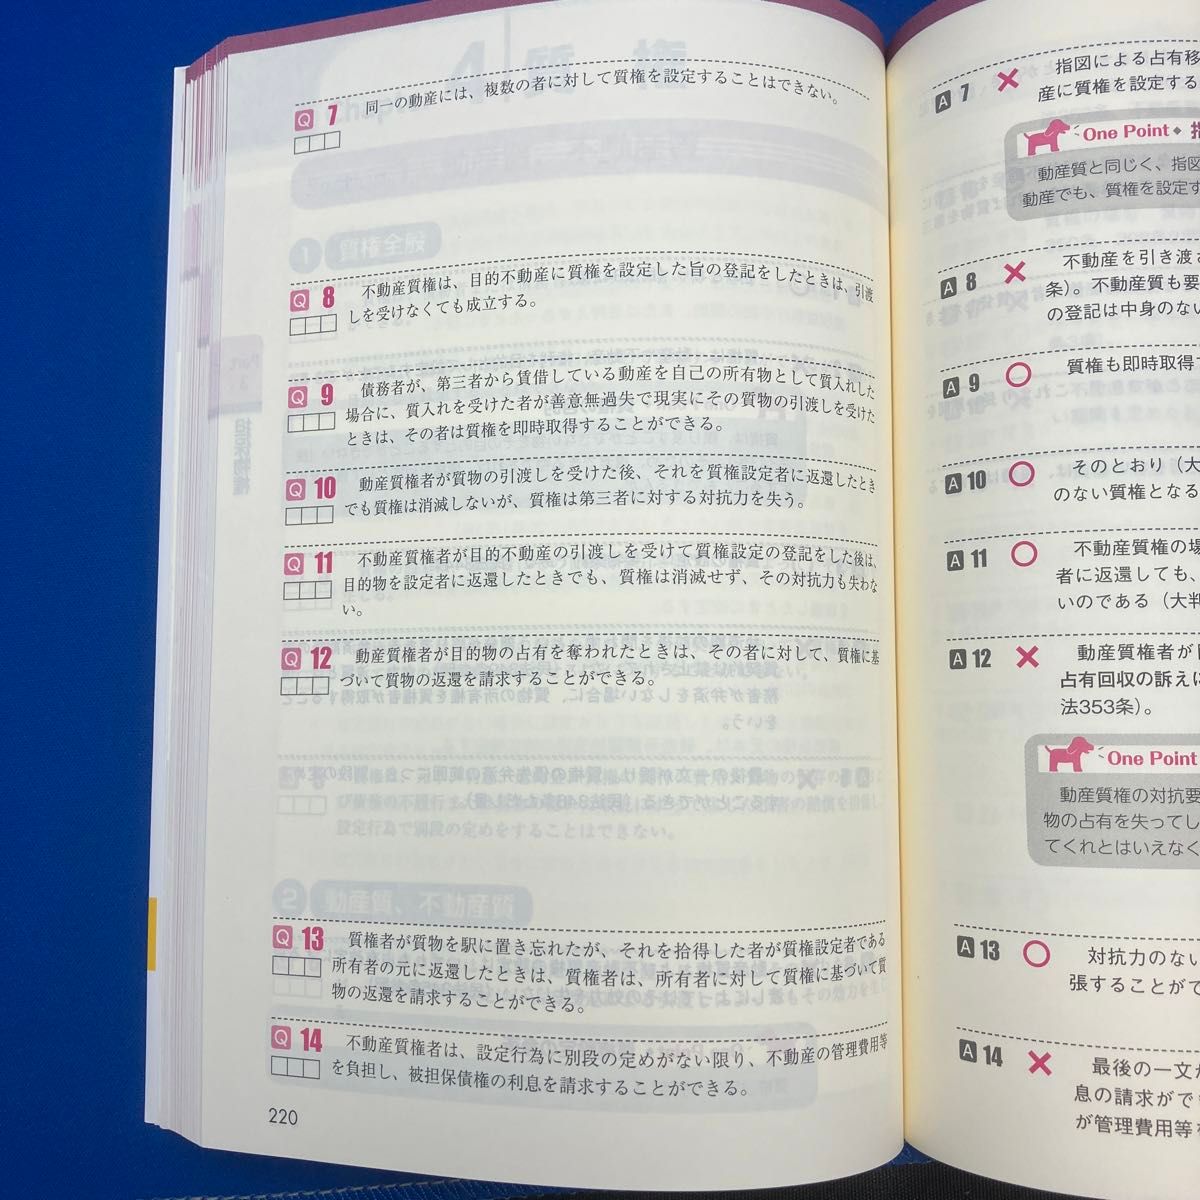 Q 7 同一の動産には、複数の者に対して質権を設定することはできない。
Q 8 不動産質権は、目的不動産に質権を設定した旨の登記をしたときは、引渡
しを受けなくても成立する。
Q 9 債務者が、第三者から賃借している動産を自己の所有物として質入れした
場合に、質入れを受けた者が善意無過失で現実にその質物の引渡しを受けた
ときは、その者は質権を即時取得することができる。
Q 10 動産質権者が質物の引渡しを受けた後、それを質権設定者に返還したとき
でも質権は消滅しないが、質権は第三者に対する対抗力を失う。
Q 11 不動産質権者が目的不動産の引渡しを受けて質権設定の登記をした後は、
目的物を設定者に返還したときでも、質権は消滅せず、その対抗力も失わな
い。
Q 12 動産質権者が目的物の占有を奪われたときは、その者に対して、質権に基
づいて質物の返還を請求することができる。
Q 13 質権者が質物を駅に置き忘れたが、それを拾得した者が質権設定者である
所有者の元に返還したときは、質権者は、所有者に対して質権に基づいて質
物の返還を請求することができる。
Q 14 不動産質権者は、設定行為に別段の定めがない限り、不動産の管理費用等
を負担し、被担保債権の利息を請求することができる。
220
A 7 × 指図による占有移
産に質権を設定する
One Point◆ 指
動産質と同じく、指図
動産でも、質権を設定す
A 8 × 不動産を引き渡
条)。不動産質も要
の登記は中身のな
A 9 ○ 質権も即時取得
A 10 ○ そのとおり(大
のない質権となる
A 11 ○ 不動産質権の場
者に返還しても、
いのである(大判
A 12 × 動産質権者が
占有回収の訴えに
法353条)。
One Point
動産質権の対抗要
物の占有を失ってし
てくれとはいえなく
A 13 ○ 対抗力のない
張することがで
A 14 × 最後の一文が
息の請求がで
が管理費用等